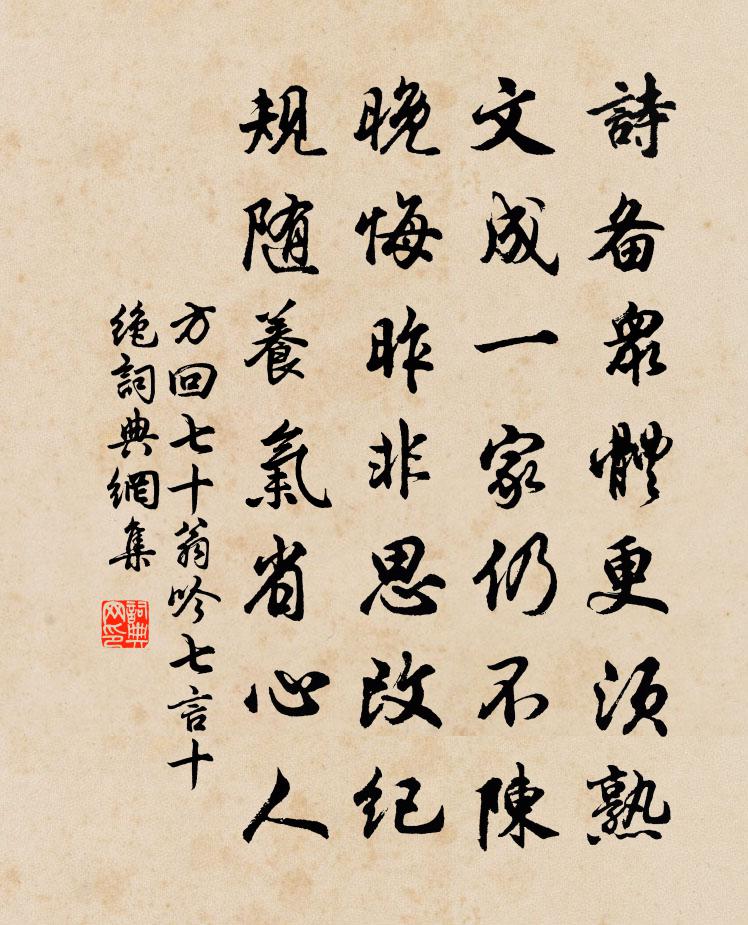 詩备眾體更須熟
文成一家仍不陳
晚悔昨非思改纪
規随養氣省心人
方回七十翁吟七言十
绝詞典網集
詞典网印